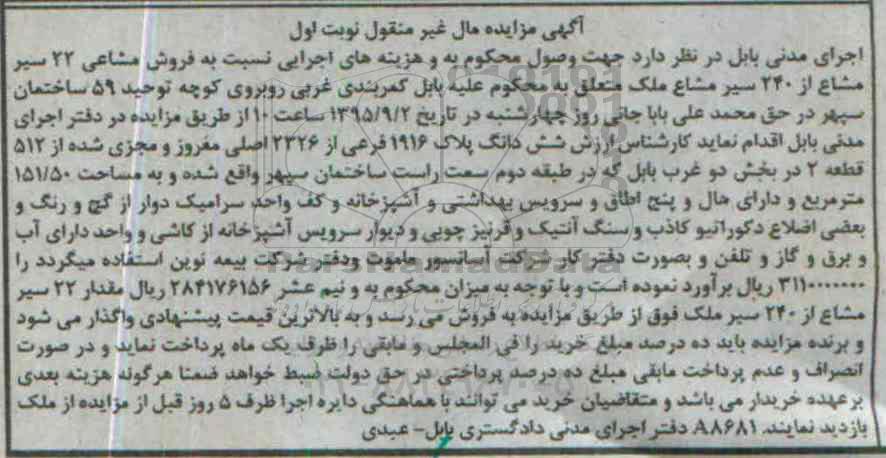 آگهی مزایده مال غیر منقول نوبت اول
اجرای مدنی بابل در نظر دارد جهت وصول محکوم به و هزینه های اجرایی نسبت به فروش مشاعی ۲۲ سیر
مشاع از ۲۴۰ سیر مشاع ملک متعلق به محکوم علیه بابل کمربندی غربی روبروی کوچه توحید ۵۹ ساختمان
سپهر در حق محمد علی بابا جانی روز چهارشنبه در تاریخ ۱۳۹۵/۹/۲ ساعت ۱۰ از طریق مزایده در دفتر اجرای
مدنی بابل اقدام نماید کارشناس ارزش شش دانگ پلاک ۱۹۱۶ فرعی از ۲۳۲۶ اصلی مفروز و مجزی شده از ۵۱۲
قطعه ۲ در بخش دو غرب بابل که در طبقه دوم سمت راست ساختمان سپهر واقع شده و به مساحت ۱۵۱/۵۰
مترمربع و دارای هال و پنج اطاق و سرویس بهداشتی و آشپزخانه و کف واحد سرامیک دوار از گچ و رنگ و
بعضی اضلاع دکوراتیو کاذب و سنگ آنتیک و قرنیز چوبی و دیوار سرویس آشپزخانه از کاشی و واحد دارای آب
و برق و گاز و تلفن و بصورت دفتر کار شرکت آسانسور ماموت ودفتر شرکت بیمه نوین استفاده میگردد را
۳۱۱۰۰۰۰۰۰۰ ریال برآورد نموده است و با توجه به میزان محکوم به و نیم عشر ۲۸۴۱۷۶۱۵۶ ریال مقدار ۲۲ سیر
مشاع از ۲۴۰ سیر ملک فوق از طریق مزایده به فروش می رسد و به بالاترین قیمت پیشنهادی واگذار می شود
و برنده مزایده باید ده درصد مبلغ خرید را فی المجلس و مابقی را ظرف یک ماه پرداخت نماید و در صورت
انصراف و عدم پرداخت مابقی مبلغ ده درصد پرداختی در حق دولت ضبط خواهد ضمنا هرگونه هزینه بعدی
برعهده خریدار می باشد و متقاضیان خرید می توانند با هماهنگی دایره اجرا ظرف ۵ روز قبل از مزایده از ملک
بازدید نمایند. A۸۶۸۱ دفتر اجرای مدنی دادگستری بابل- عبدی
ParsNamadData